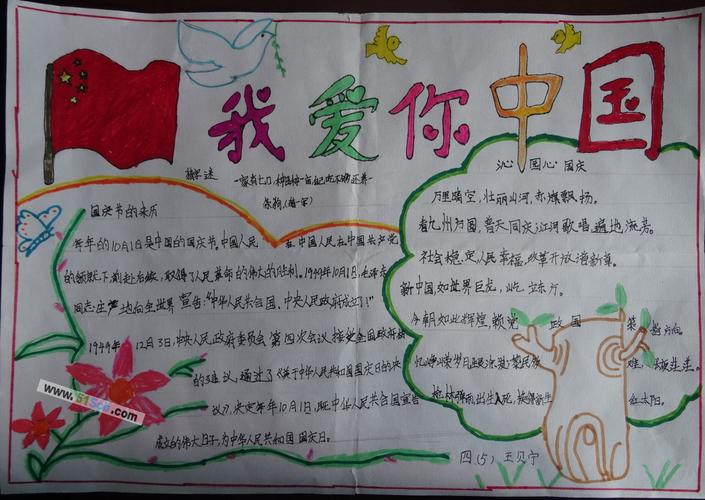 我爱你中国
国庆节的来历
每年的10月1日是中国的国庆节。中国人民在中国共产党
的领导下,前赴后继,取得了人民革命的伟大的胜利。1949年10月1日,毛泽东
同志庄严地向全世界宣告:"中华人民共和国,中央人民政府成立了!"
1949年12月3日,中央人民政府委员会第四次会议,接受全国政
的建议,通过了《关于中华人民共和国国庆日的决
议》,决定每年10月1日,即中华人民共和国宣告
成立的伟大日子,为中华人民共和国国庆日。
沁园心 国庆
万里晴空,壮丽山河,赤旗飘扬。
看九州方圆,普天同庆,江河歌唱,遍地流芳。
社会稳定,人民幸福,改革开放谱新章。
新中国,如世界巨龙,屹立东方。
今朝如此辉煌,赖党政国策
忆峥嵘岁月
枪林弹雨出生入死,换得新
红太阳。
四(5) 王贝宁
www.51scb.com